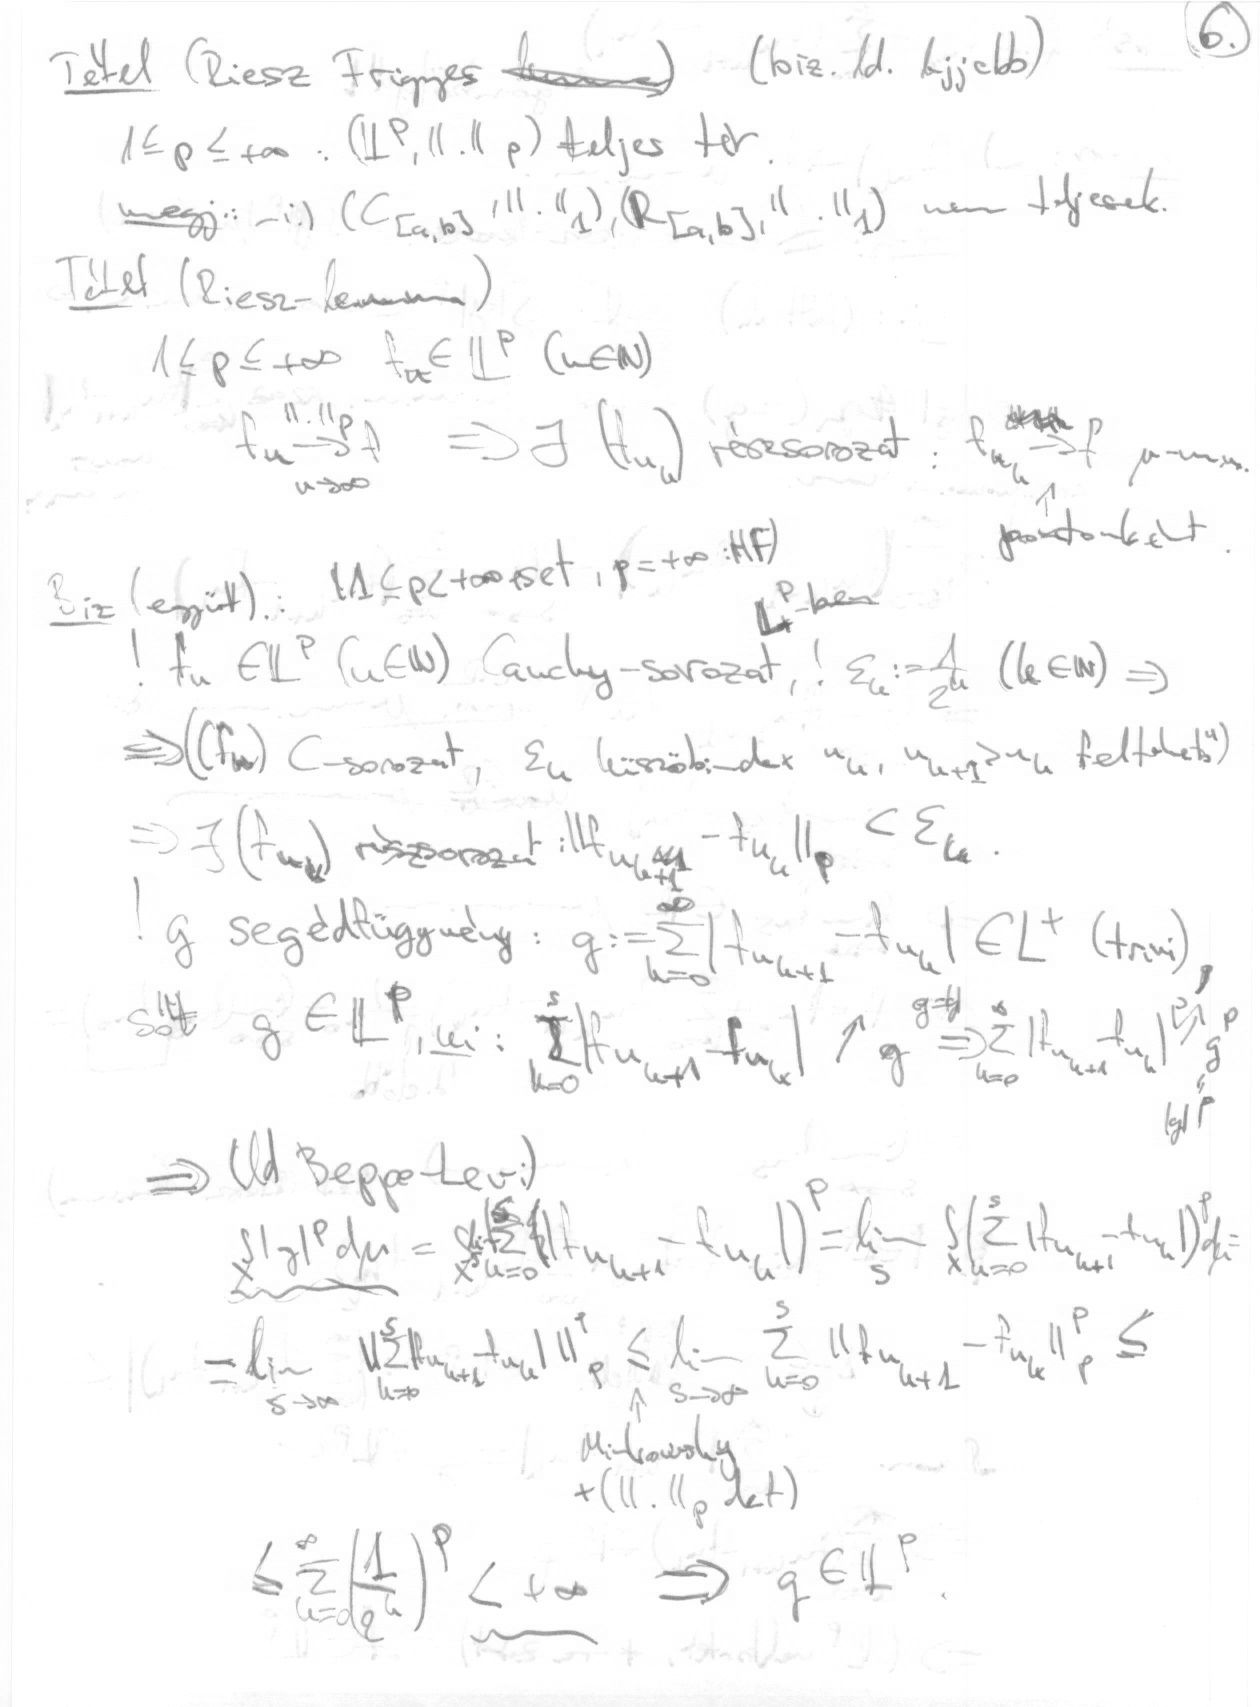 6.
Tétel (Riesz Frigyes lemma) (biz. ld. lejjebb)
1 ≤ p ≤ +∞ : (𝕃^p, ||.||_p) teljes tér.
megj.: -i) (C_[a,b], ||.||_1), (R_[a,b], ||.||_1) nem teljesek.
Tétel (Riesz-lemma)
1 ≤ p ≤ +∞ f_n ∈ 𝕃^p (n∈ℕ)
f_n →^{||.||_p}_{n→∞} f ⟹ ∃ (f_{n_k}) részsorozat : f_{n_k} → f μ-m.m.
↑
pontonként.
Biz (együtt): (1 ≤ p < +∞ eset, p = +∞ : HF)
𝕃^p-ben
! f_n ∈ 𝕃^p (n∈ℕ) Cauchy-sorozat, ! ε_k := 1/2^k (k∈ℕ) ⇒
⇒ ((f_n) C-sorozat, ε_k küszöbindex n_k, n_{k+1} > n_k feltehető)
⇒ ∃ (f_{n_k}) részsorozat : ||f_{n_{k+1}} - f_{n_k}||_p < ε_k.
! g segédfüggvény : g := Σ_{k=0}^∞ |f_{n_{k+1}} - f_{n_k}| ∈ L^+ (trivi),
sőt g ∈ 𝕃^p, ui : Σ_{k=0}^s |f_{n_{k+1}} - f_{n_k}| ↑ g ⇒^{g=|g|} Σ_{k=0}^s |f_{n_{k+1}} - f_{n_k}|^p ↗ g^p
"
|g|^p
⟹ (ld Beppo-Levi)
∫_X |g|^p dμ = ∫_X lim_s (Σ_{k=0}^s |f_{n_{k+1}} - f_{n_k}|)^p = lim_s ∫_X (Σ_{k=0}^s |f_{n_{k+1}} - f_{n_k}|)^p dμ =
= lim_{s→∞} ||Σ_{k=0}^s |f_{n_{k+1}} - f_{n_k}| ||_p^p ≤ lim_{s→∞} Σ_{k=0}^s ||f_{n_{k+1}} - f_{n_k}||_p^p ≤
↑
Minkowsky
+ (||.||_p def)
≤ Σ_{k=0}^∞ (1/2^k)^p < +∞ ⟹ g ∈ 𝕃^p.